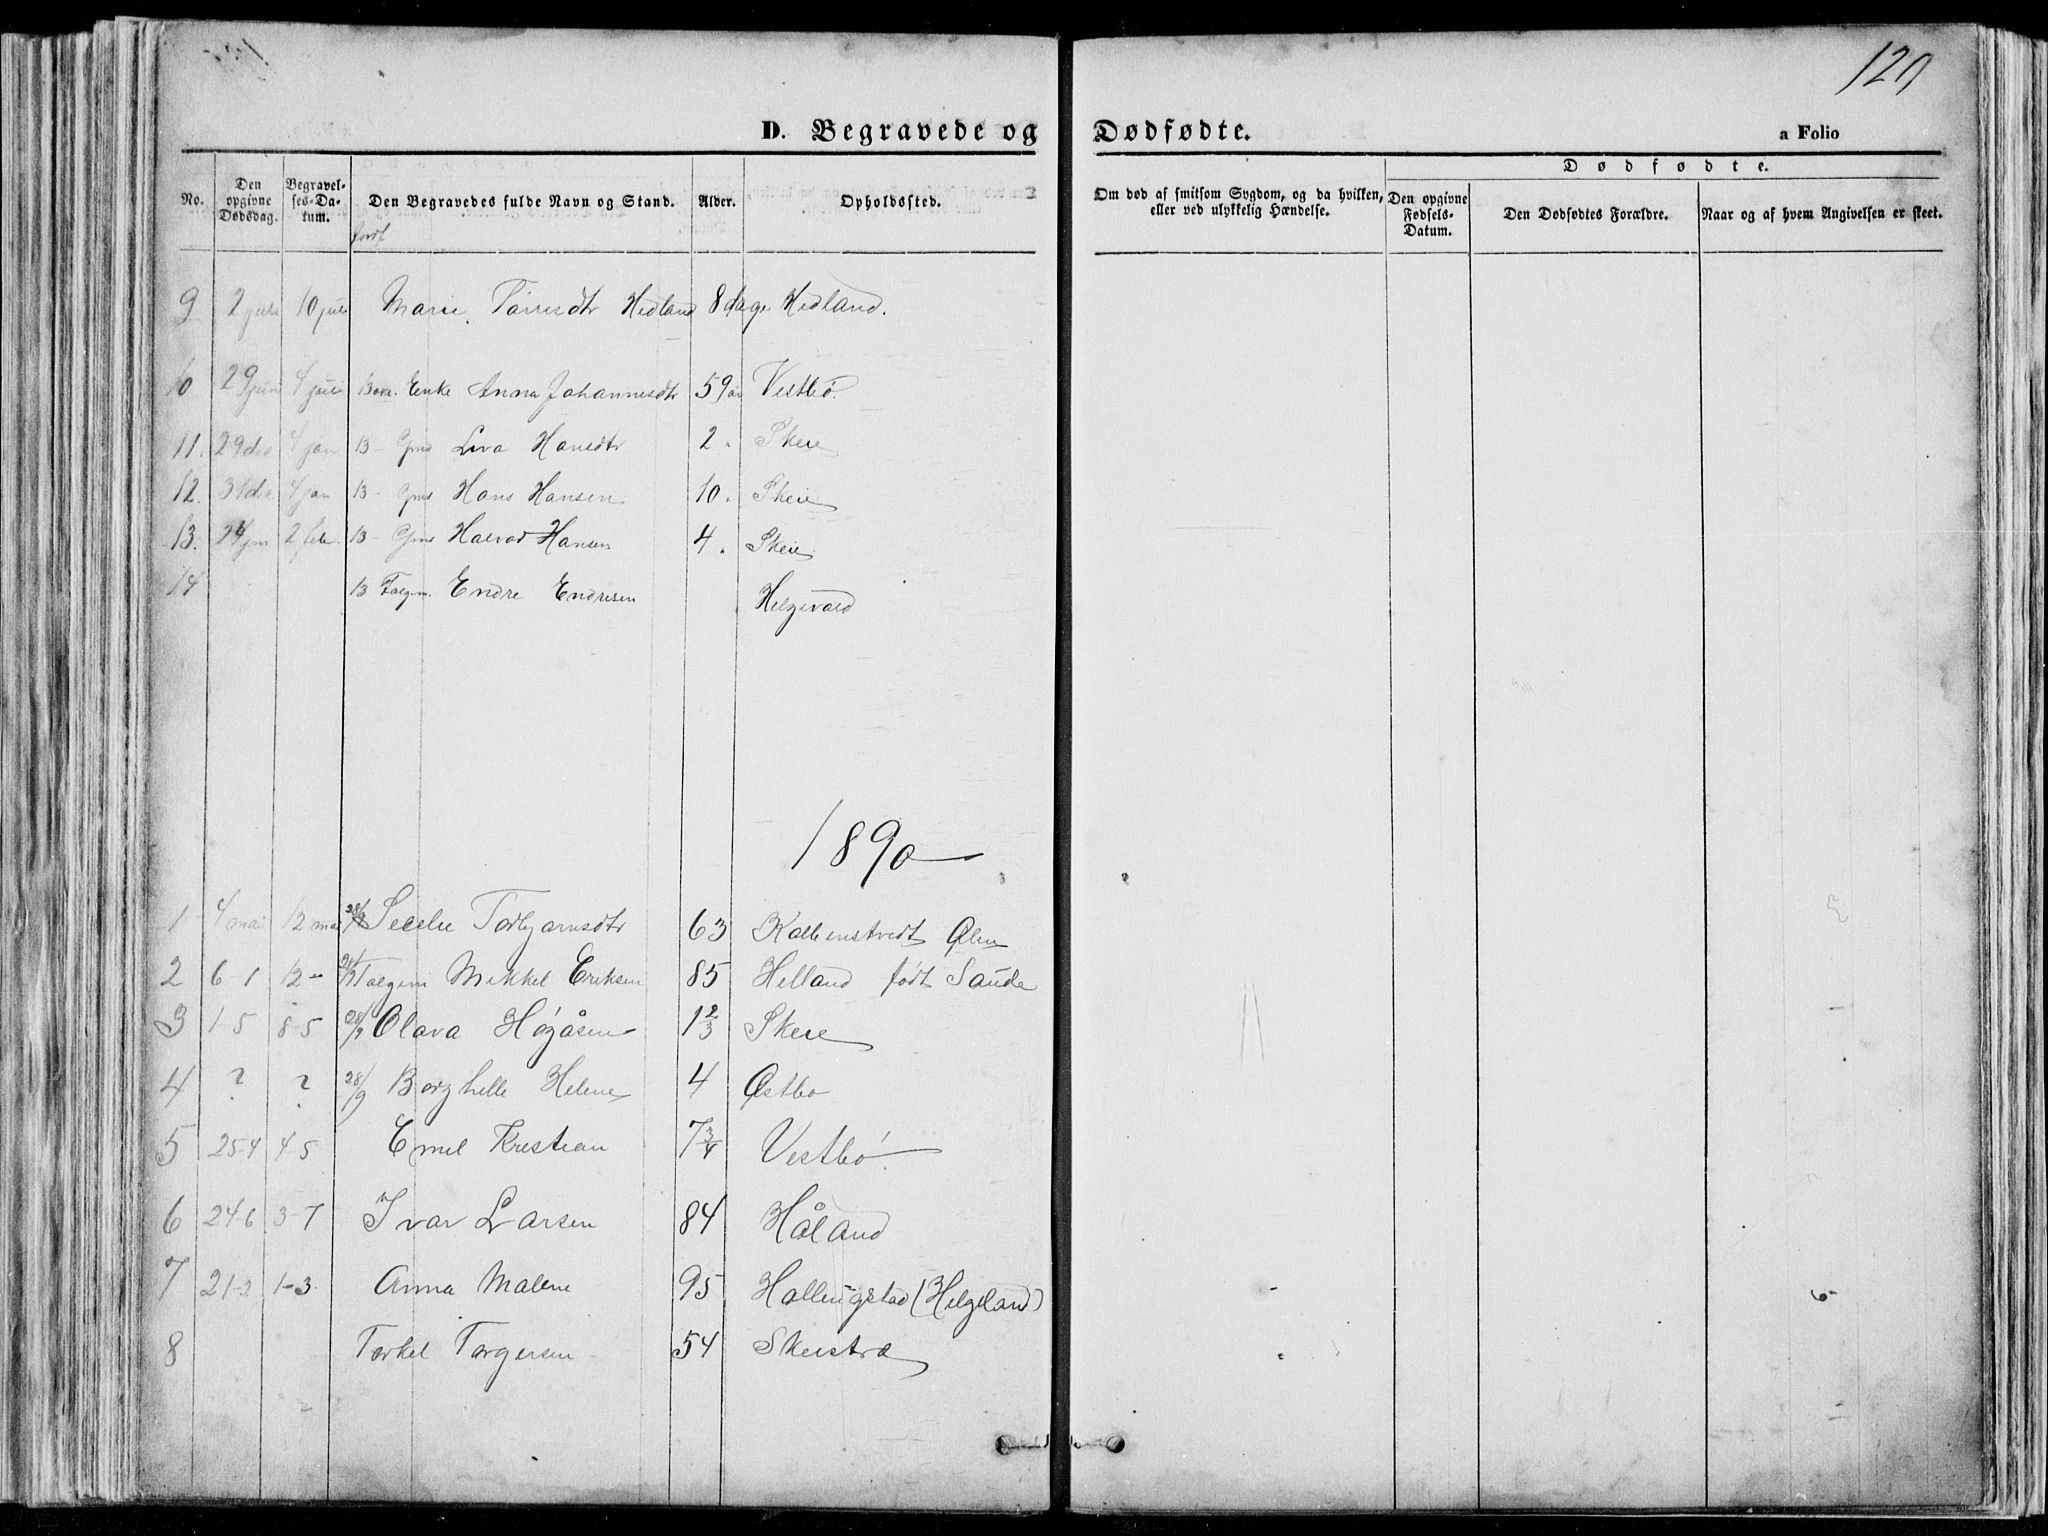 120
D. Begravede og Dødfødte.
a Folio
No. Den opgivne Dødsdag. Begravelses-Datum. Den Begravedes fulde Navn og Stand. Alder. Opholdssted.
Om død af smitsom Sygdom, og da hvilken, eller ved ulykkelig Hændelse.
Dødfødte.
Den opgivne Fødsels-Datum. Den Dødfødtes Forældre. Naar og af hvem Angivelsen er skeet.
9 2 juli 10 juli Marie Hedland 8 dage Hedland.
10 29 juni 4 juli Enke Anna Johannesdtr 59 år Vestbø.
11. 29 dec 4 jan 13 - Hansdtr 2. Skeie
12. 31 dec 4 jan 13 - Hans Hansen 10. Skeie
13. 24 jan 2 feb. 13 - Halvod Hansen 4. Skeie
14 13 Endre Endresen
1890
1 4 mai 12 mai 28/9 Torbjørnsdtr 63 Ølen
2 6-1 12 - 28/9 Mikkel Eriksen 85 Helland født Saude
3 1-5 8-5 28/9 Olava Høyåsen 1 2/3 Skeie
4 ? ? 28/9 Borghelle Helene 4 Østbø
5 25-4 4-5 Emil Kristian 7 3/4 Vestbø.
6 24-6 3-7 Ivar Larsen 84 Håland
7 21-2 1-3 Anna Malene 95 Hallingstad (Helgeland)
8 Torkel Torgersen 54